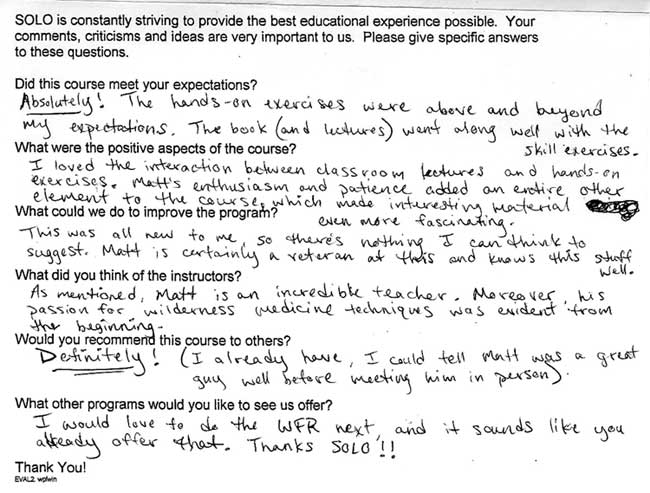 SOLO is constantly striving to provide the best educational experience possible. Your
comments, criticisms and ideas are very important to us. Please give specific answers
to these questions.
Did this course meet your expectations?
Absolutely! The hands-on exercises were above and beyond
my expectations. The book (and lectures) went along well with the
skill exercises.
What were the positive aspects of the course?
I loved the interaction between classroom lectures and hands-on
exercises. Matt's enthusiasm and patience added an entire other
element to the course, which made interesting material
even more fascinating.
What could we do to improve the program?
This was all new to me, so there's nothing I can think to
suggest. Matt is certainly a veteran at this and knows this stuff
well.
What did you think of the instructors?
As mentioned, Matt is an incredible teacher. Moreover, his
passion for wilderness medicine techniques was evident from
the beginning.
Would you recommend this course to others?
Definitely! (I already have, I could tell Matt was a great
guy well before meeting him in person).
What other programs would you like to see us offer?
I would love to do the WFR next, and it sounds like you
already offer that. Thanks SOLO!!
Thank You!
EVAL2 wpfwin